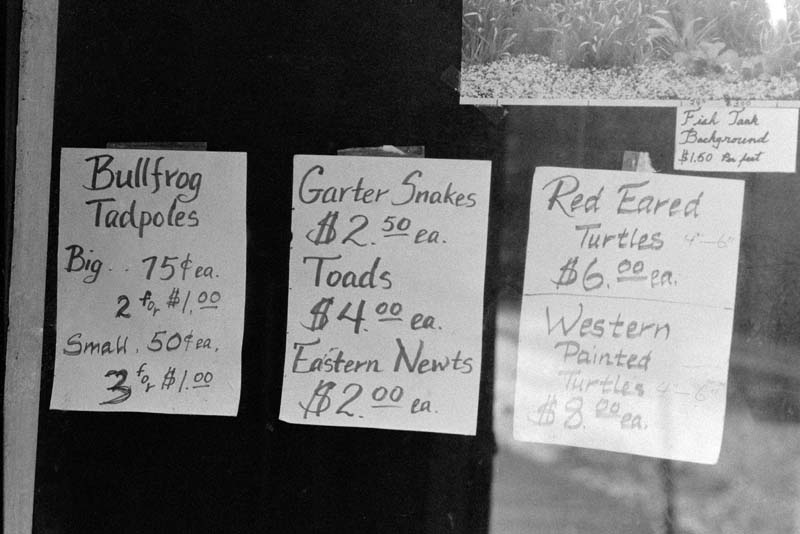 Bullfrog
Tadpoles
Big .. 75¢ ea.
2 for $1.00
Small . 50¢ ea.
3 for $1.00
Garter Snakes
$2.50 ea.
Toads
$4.00 ea.
Eastern Newts
$2.00 ea.
Red Eared
Turtles 4"-6"
$6.00 ea.
Western
Painted
Turtles 4"-6"
$8.00 ea.
Fish Tank
Background
$1.50 Per feet